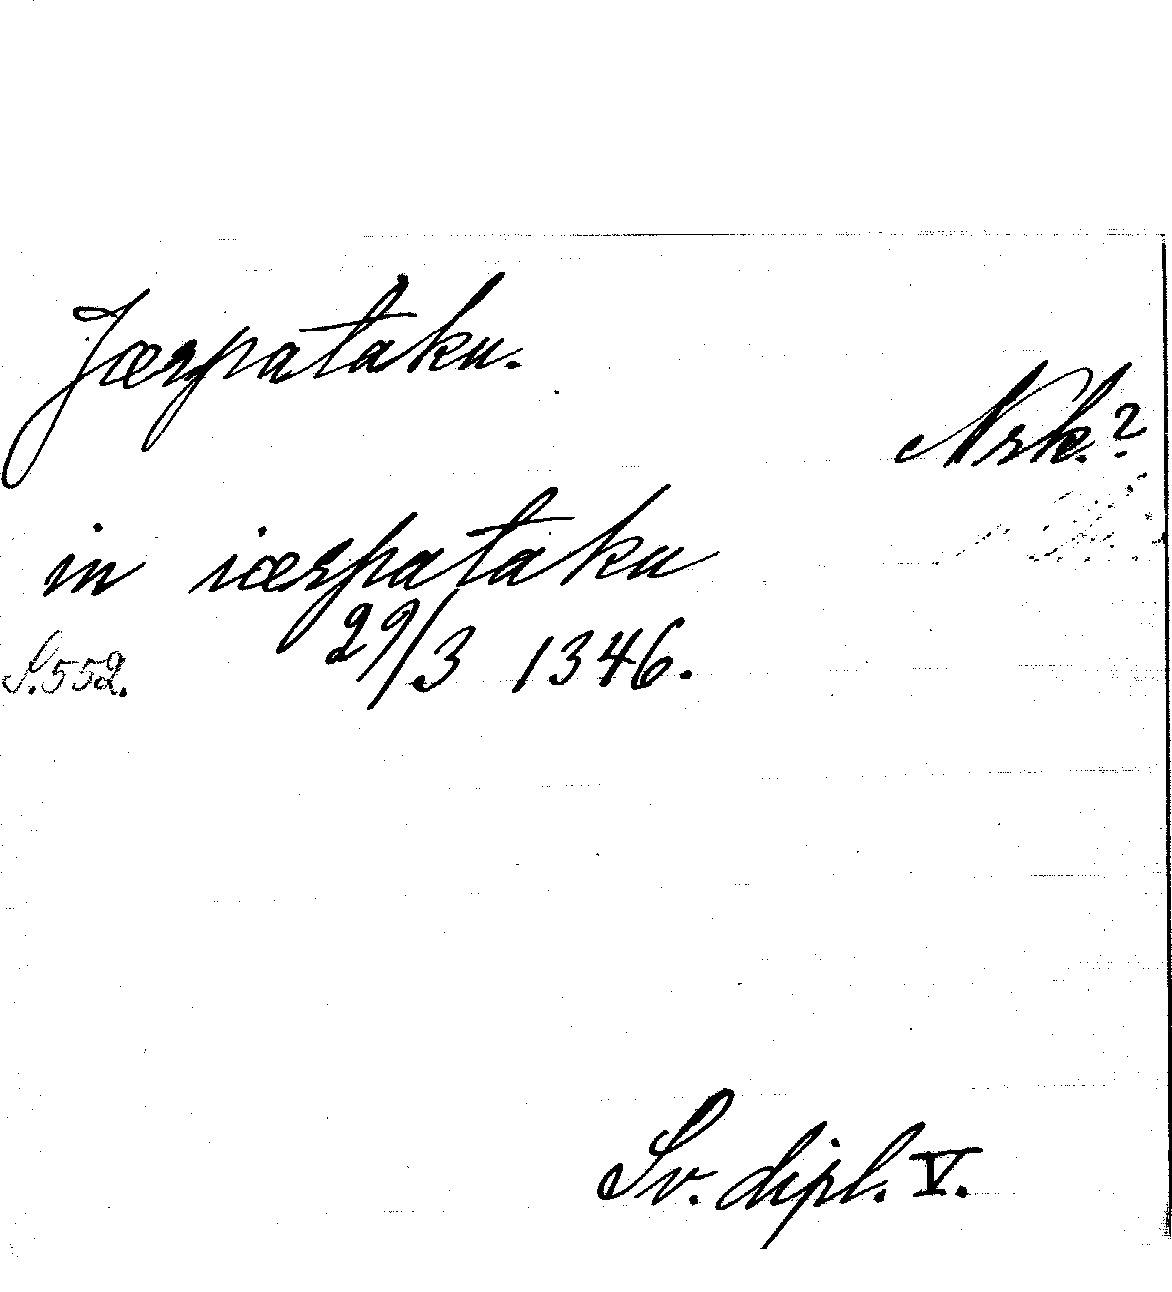 Jærpataku.
Nrk.?
in iærpataku
29/3 1346.
S. 552.
Sv. dipl. V.